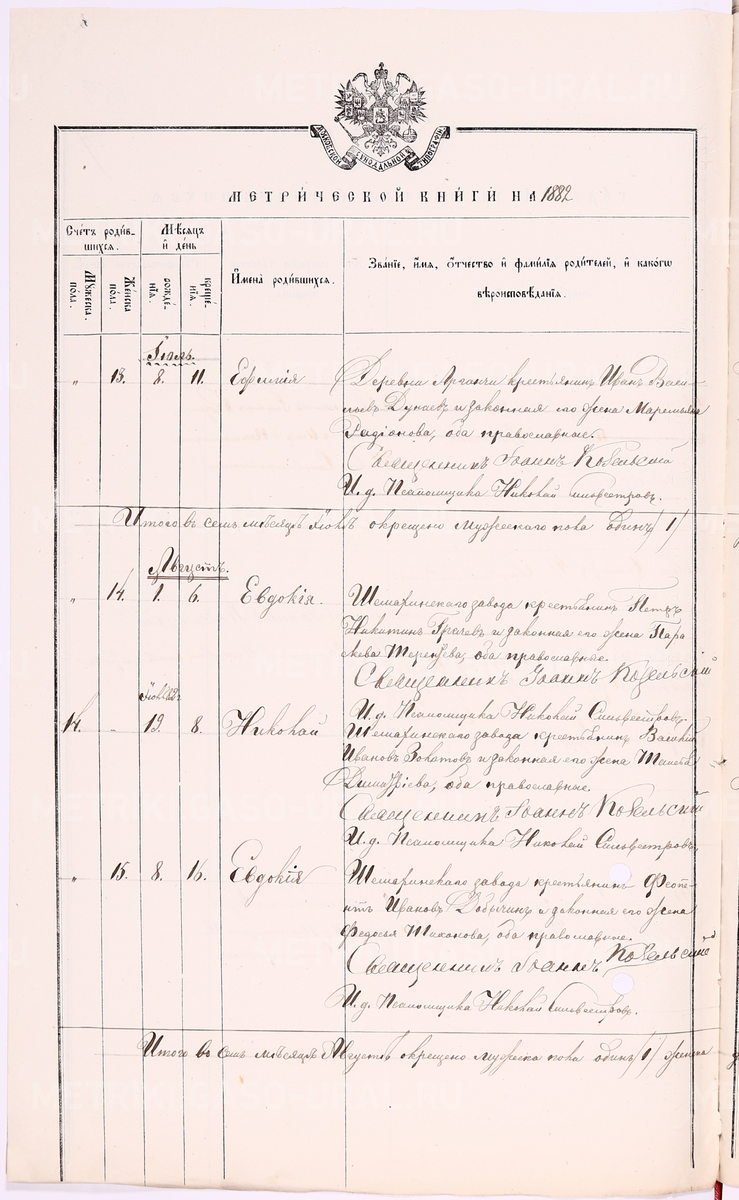 МОСКОВСКОЙ СУНОДАЛЬНОЙ ТИПОГРАФІИ
МЕТРИ́ЧЕСКОЙ КНИ́ГИ НА 1882
Сче́тъ роди́в-
шихся.
Мѣ́сяцъ
и҆ де́нь
И҆мена̀ роди́вшихся.
Зва́нїе, и҆́мя, ѻ҆́тчество и҆ фами́лїя роди́телей, и҆ како́гѡ
вѣроисповѣ́данїя.
Мꙋ́жеска
по́ла.
Же́нска
по́ла.
рожде́-
нїя.
креще́-
нїя.
Іюль.
„ 13. 8. 11. Ефимія
Деревни Арганчи крестьянинъ Иванъ Васи-
льевъ Дунаевъ и законная его жена Маремьяна
Радіонова, оба православные.
Священникъ Іоаннъ Кобельскій
И. д. Псаломщика Николай Сильвестровъ.
Итого въ семъ мѣсяцѣ Іюлѣ окрещено мужескаго пола одинъ /1/
Августъ.
„ 14. 1. 6. Евдокія.
Шемахинскаго завода крестьянинъ Петръ
Никитинъ Грачевъ и законная его жена Пара
скева Терентьева, оба православные.
Священникъ Іоаннъ Кобельскій
И. д. Псаломщика Николай Сильвестровъ.
Іюля
14. „ 19. 8. Николай
Шемахинскаго завода крестьянинъ Василій
Ивановъ Золотовъ и законная его жена
Димитріева, оба православные.
Священникъ Іоаннъ Кобельскій
И. д. Псаломщика Николай Сильвестровъ.
„ 15. 8. 16. Евдокія
Шемахинскаго завода крестьянинъ Феопе-
нтъ Ивановъ Добычинъ и законная его жена
Федосья Тихонова, оба православные.
Священникъ Іоаннъ Кобельскій
И. д. Псаломщика Николай Сильвестровъ.
Итого въ семъ мѣсяцѣ Августѣ окрещено мужеска пола одинъ /1/ женска
METRIKI.GASO-URAL.RU